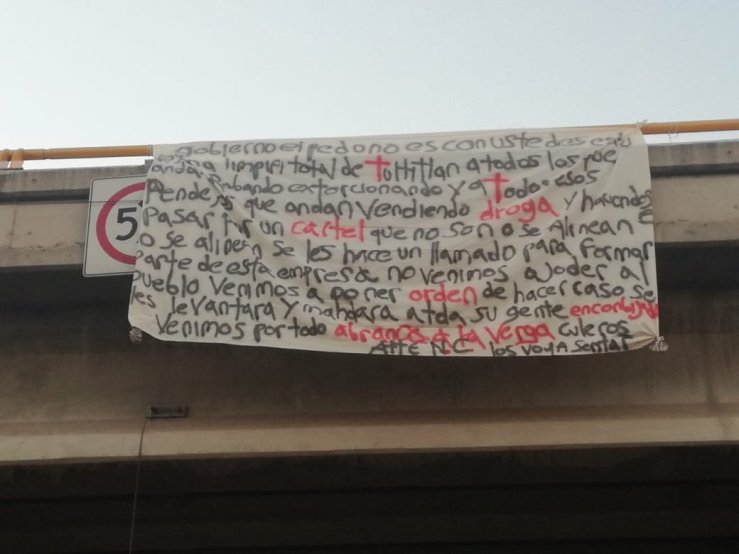 gobierno el pedo no es con ustedes esto
limpia total de toltitlan a todos los que
andan Robando extorcionando y a todos esos
Pendejos que andan vendiendo droga y haciendose
Pasar por un cartel que no son o se alinean
o se alinean se les hace un llamado para formar
Parte de esta empresa no venimos a Joder al
pueblo venimos a poner orden de hacer caso se
les levantara y mandara a toda su gente encobijada
Venimos por todo abranse a la verga culeros
Atte NC los voy a sentar
5